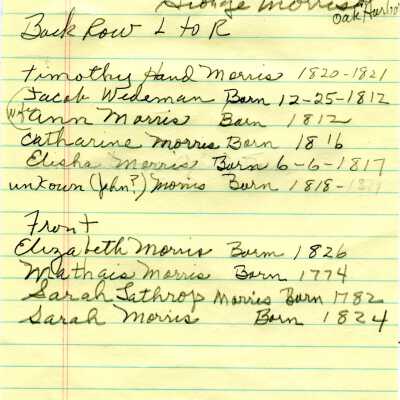 George Morris
Oak Harbor
Back Row L to R
Timothy Hand Morris 1820-1821
Jacob Wedeman Born 12-25-1812
wife Ann Morris Born 1812
Catharine Morris Born 1816
Elisha Morris Born 6-6-1817
unkown (John?) Morris Born 1818-
Front
Elizabeth Morris Born 1826
Mathais Morris Born 1774
Sarah Lathrop Morris Born 1782
Sarah Morris Born 1824